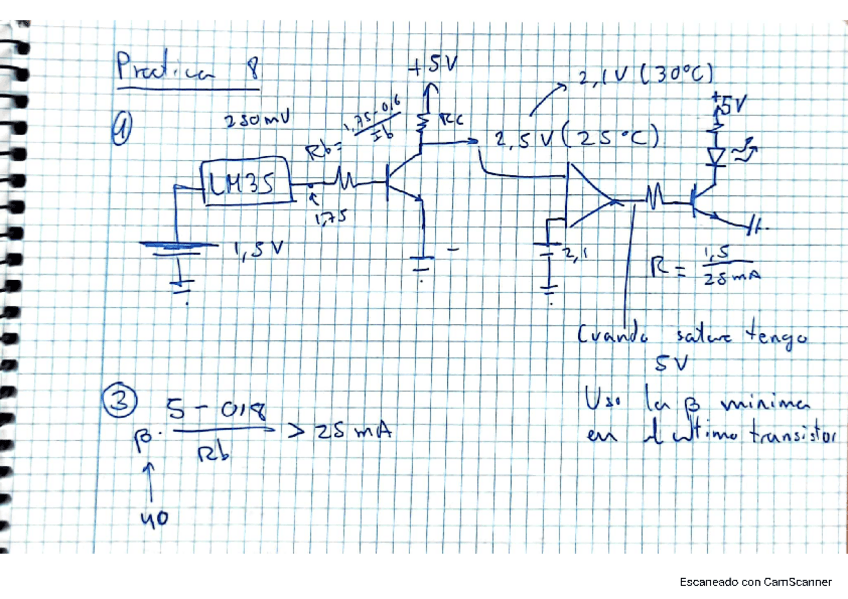 Practica 8
+5V
2,1V (30°C)
+5V
① 250mV
Rb = 1,75-0,6 / Ib
Rc
2,5V (25°C)
LM35
1,75
1,5V
2,1
R = 1,5 / 25mA
Cuando sature tengo
5V
Uso la β minima
en el ultimo transistor
③ β. 5-0,8 / Rb > 25 mA
40
Escaneado con CamScanner